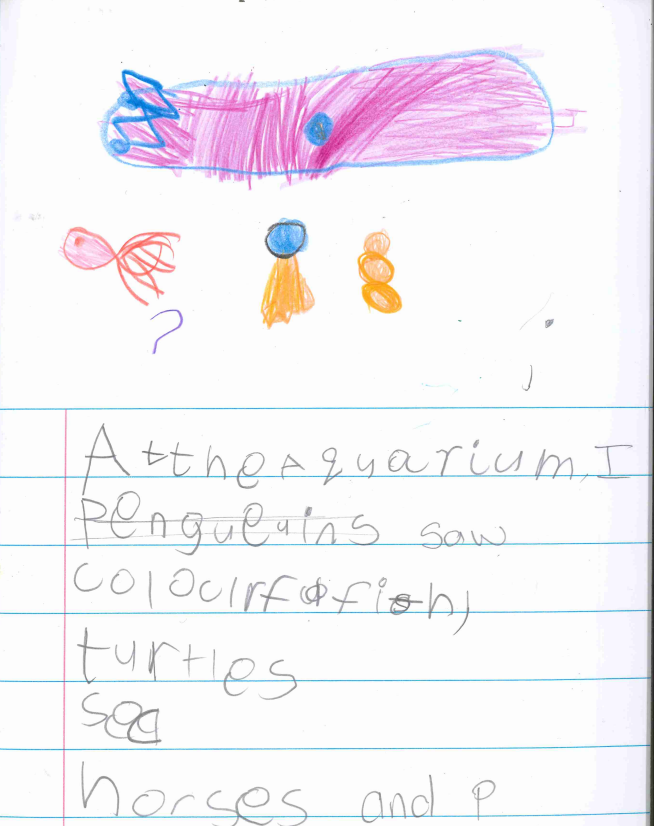 At the Aquarium, I
Pengueuins saw
colourfofish,
turtles
sea
horses and p